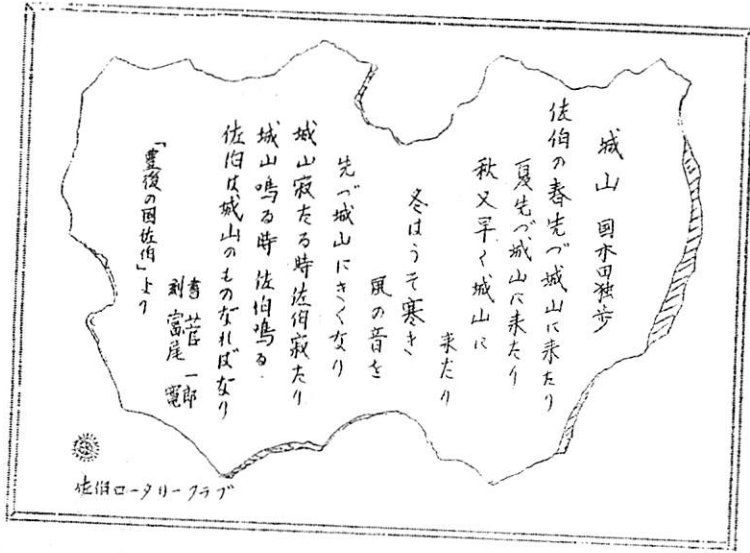 城山 国木田独歩
佐伯の春先づ城山に来たり
夏先づ城山に来たり
秋又早く城山に
来たり
冬はうそ寒き
風の音を
先づ城山にきくなり
城山寂たる時佐伯寂たり
城山鳴る時佐伯鳴る
佐伯は城山のものなればなり
「豊後の国佐伯」より
書 一郎
刻 富尾
佐伯ロータリークラブ